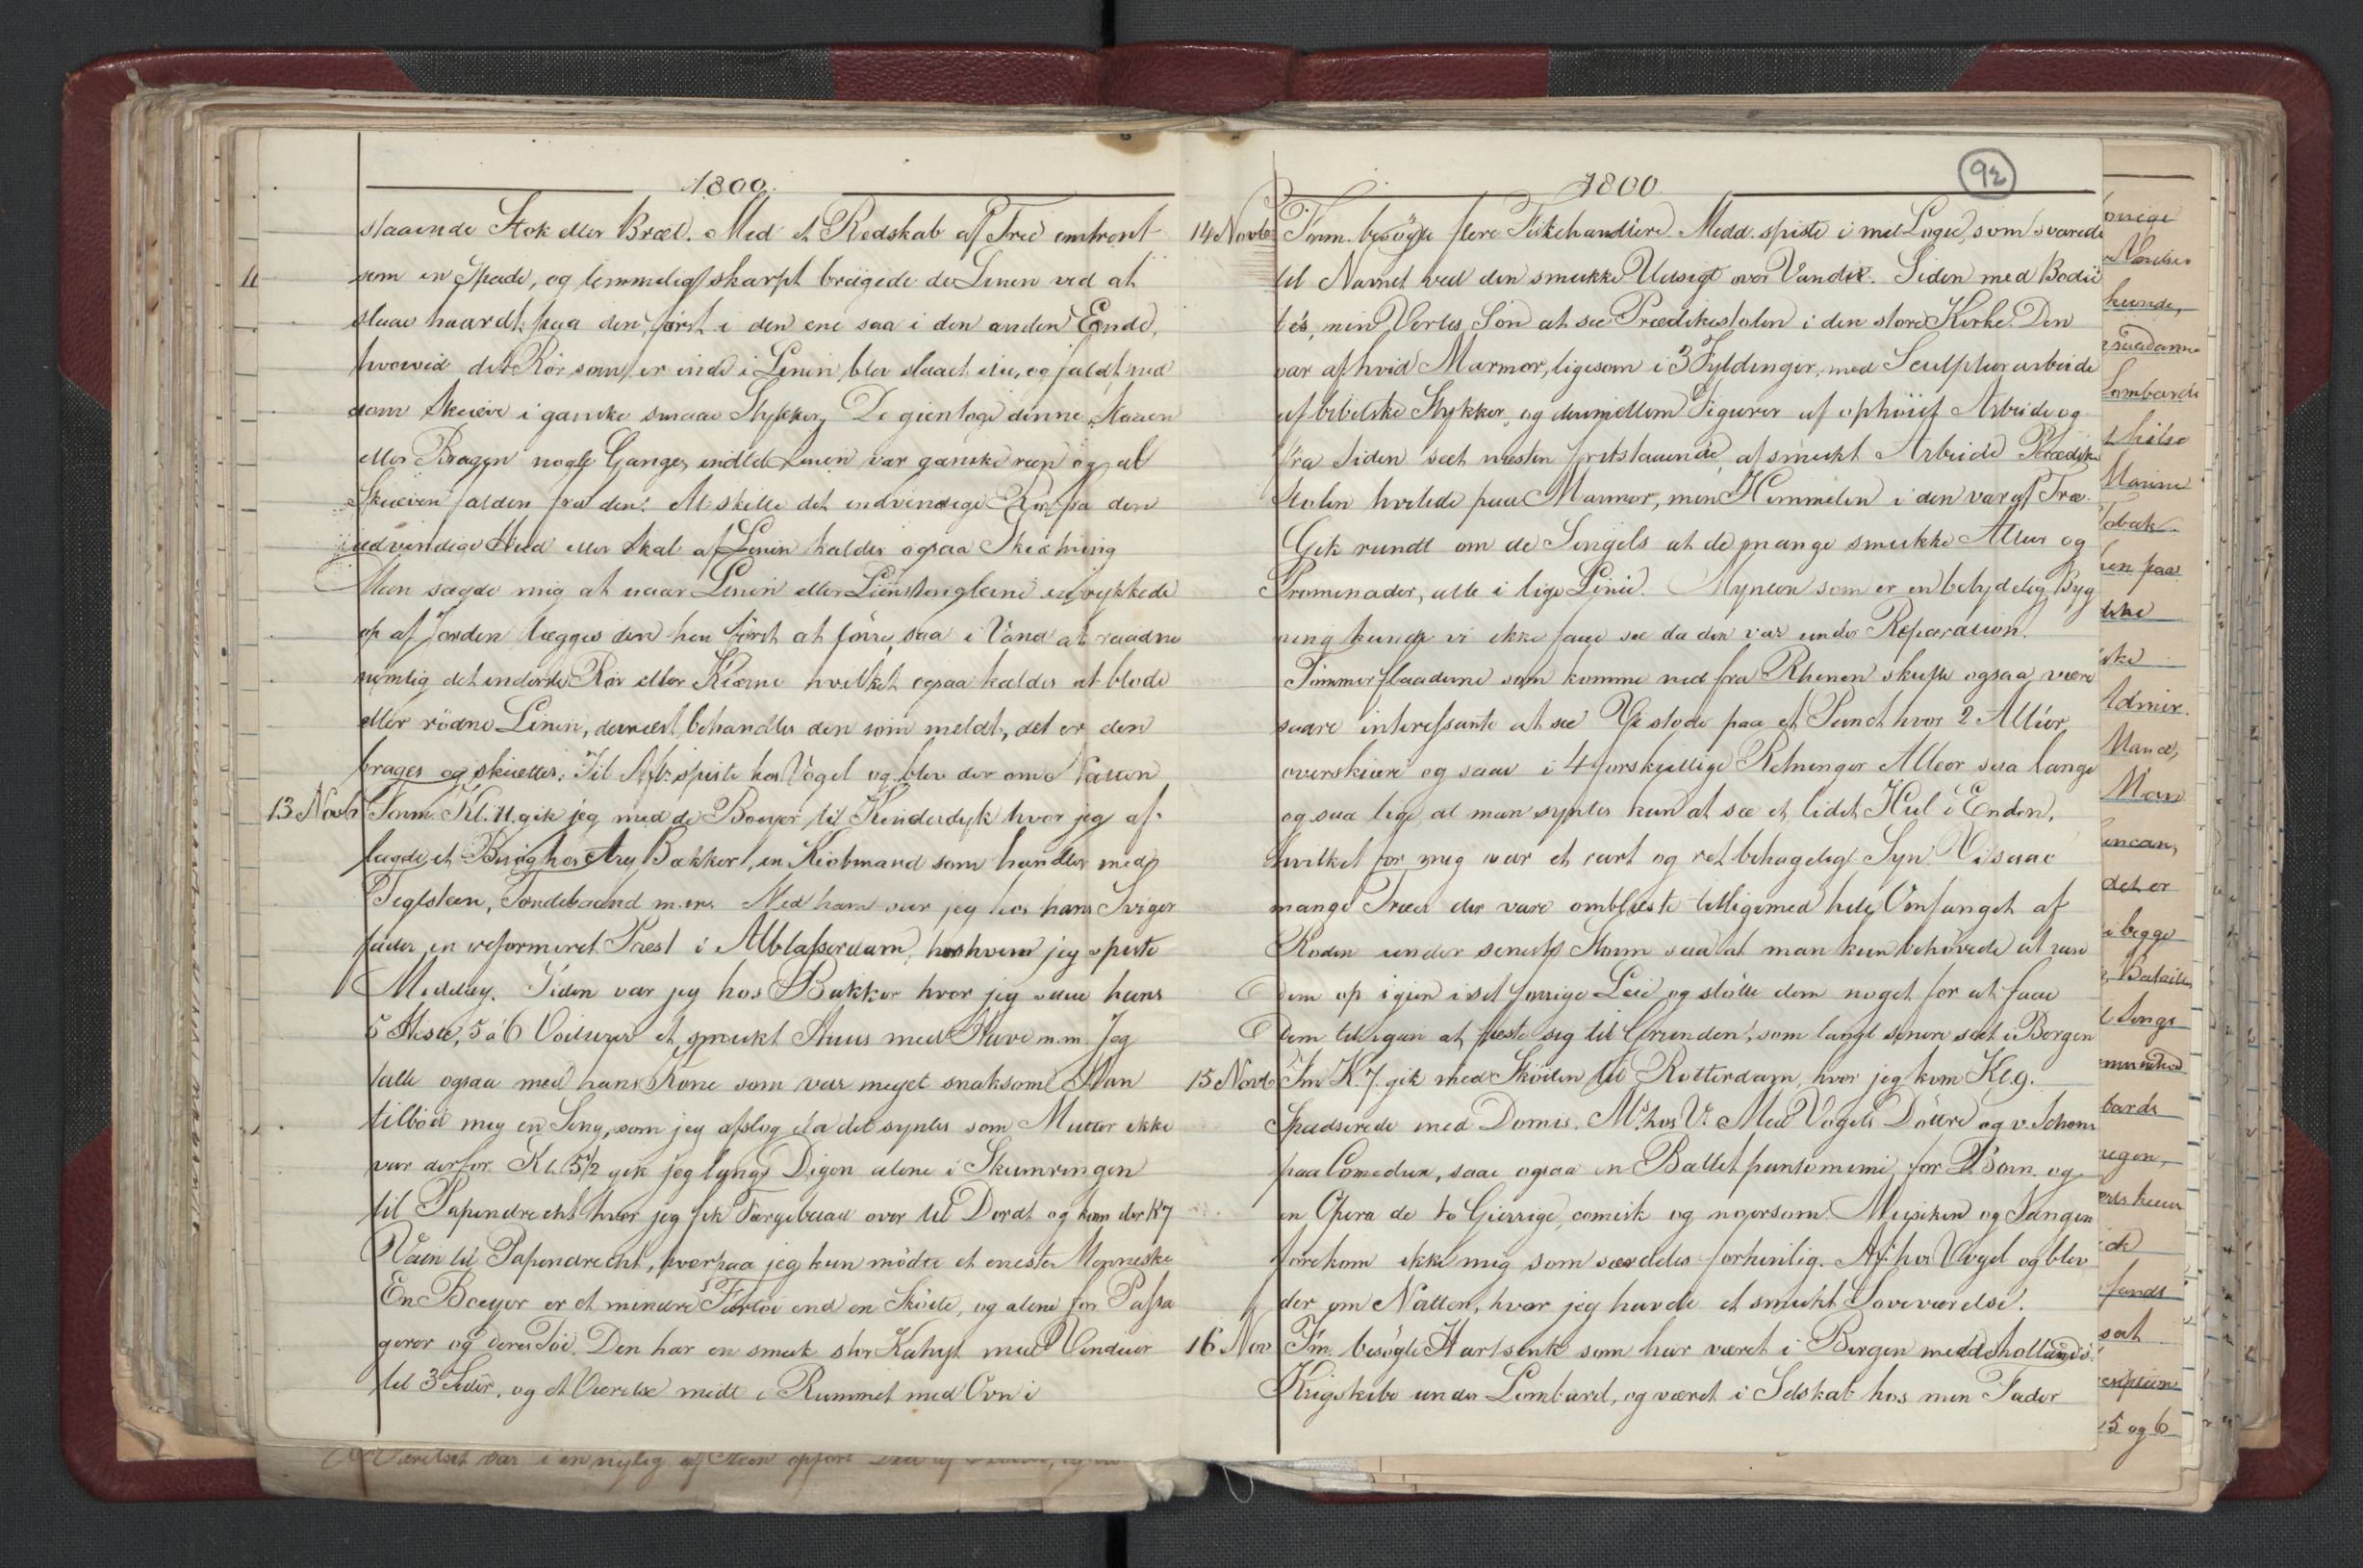 1800.
staaende Stok eller Bræt. Med et Redskab af Træ omtrent
11 som en Spade, og temmelig skarpt brægede de Linen ved at
slaae haardt paa den, først i den ene saa i den anden Ende,
hvorved det Rör som er inde i Linen blev slaaet itu, og faldt ned
som Skiæve i ganske smaae Stykker, De gientoge denne
eller Bragen nogle Gange, indtil Linen var ganske reen og al
Skiæven falden fra den. At skille det indvendige Rör fra den
udvendige Hud eller Skal af Linen kaldes ogsaa
Man sagde mig at naar Linen eller Linstenglerne ere rykkede
op af Jorden lægges den hen først at törre, saa i Vand at raadne
nemlig det inderste Rör eller Kiærne hvilket ogsaa kaldes at blöde
eller rödne Linen, dernæst behandles den som meldt, det er den
brages og skiættes. Til Aft. spiste hos Vogel og blev der om Natten
13 Novb Form. Kl. 11. gik jeg med de Boeyer til Kinderdyk hvor jeg af-
lagde et Besög hos Ary Bakker, en Kiöbmand som handler med
Teglsteen, Töndebaand m.m. Med ham var jeg hos hans Sviger
fader, en reformeret Præst i Alblasserdam, hos hvem jeg spiste
Middag. Siden var jeg hos Bakker hvor jeg saae hans
5 Heste, 5 à 6 Voiturer et smukt Huus med Have m.m. Jeg
talte ogsaa med hans Kone som var meget snaksom. Man
tilböd mig en Seng, som jeg afslog da det syntes som Mutter ikke
var derfor. Kl. 5 1/2 gik jeg langs Digen alene i Skumringen
til Papendrecht hvor jeg fik Færgebaad over til Dordt og kom der Kl 7
Veien til Papendrecht, hvorpaa jeg kun mödte et eneste Menneske
En Boeyer er et mindre Fartöi end en Sköite, og alene for Passa
gerer og deres Töi. Den har en smuk stor Kahyt med Vinduer
til 3 Sider, og et Værelse midt i Rummet med Ovn i
Værelset var i en nylig af Steen opført
1800
92
14 Novb Form. besögte flere Fiskehandlere. Midd. spiste i mit Logie, som svarede
til Navnet ved den smukke Udsigt over Vandet. Siden med Bodii
tes, min Vertes Sön at see Prædikestolen i den store Kirke. Den
var af hvid Marmor, ligesom i 3 Fyldinger, med Sculpturarbeide
af bibelske Stykker, og derimellem Figurer af ophöiet Arbeide og
fra Siden seet næsten fritstaaende, af smukt Arbeide. Prædike
stolen hvilede paa Marmor, men Himmelen i den var af Træ.
Gik rundt om de Singels at de mange smukke Alleer og
Promenader, alle i lige Linie. Mynten som er en betydelig Byg
ning kunde vi ikke faae see da den var under Reparation.
Tömmerflaaderne som komme ned fra Rhenen skulle ogsaa være
saare interessante at see Vi stode paa et Punct hvor 2 Alleer
overskiære og saae i 4 forskiellige Retninger Alleer saa lange
og saa lige, at man syntes kun at see et lidet Hul i Enden,
hvilket for mig var et rart og ret behageligt Syn. Vi saae
mange Træer der vare omblæste tilligemed hele Omfanget af
Roden under seneste Storm saa at man kun behövede at reise
dem op igien i sit forrige Leie og stötte dem noget for at faae
dem til igien at fæste sig til Grunden, som langt senere seet i Bergen
15 Novb Fm Kl. 7. gik med Sköiten til Rotterdam, hvor jeg kom Kl. 9.
Spadserede med Domis. M. hos V. Med Vogels Döttre og v. Schons
paa Comedien, saae ogsaa en Ballet pantomime for Börn og
en Opera de to Gierrige, comisk og morsom. Musiken og Sangen
forekom ikke mig som særdeles fortrinlig. Aft. hos Vogel og blev
der om Natten, hvor jeg havde et smukt Soveværelse.
16 Nov Fm. besögte Hartsink som har været i Bergen med de hollandske
Krigskibe under Lombard, og været i Selskab hos min Fader
kunde,
saadanne
Lombarde
Marine
Tobak
paa
Admir.
Mand,
Man
det er
i begge
Batailler
fands
sat
5 og 6